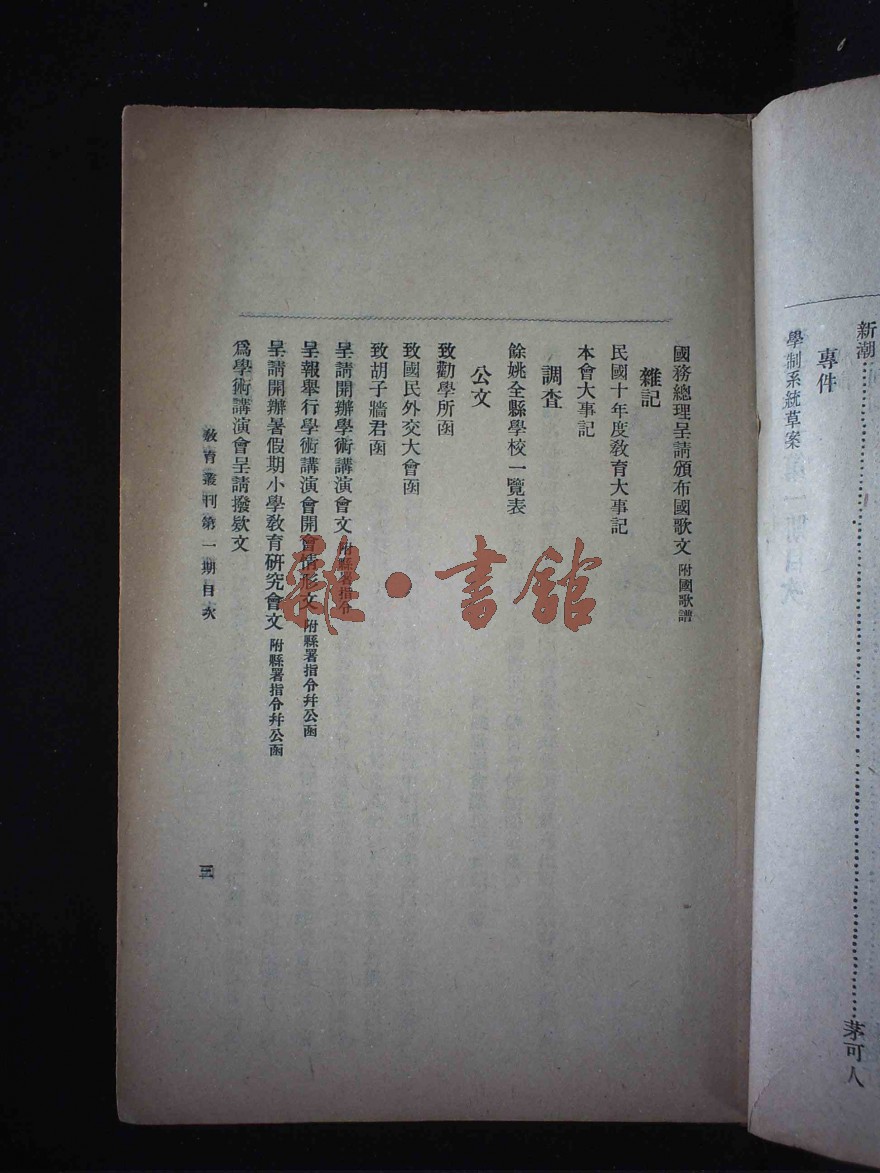 新潮……茅可人
專件
學制系統草案
國務總理呈請頒布國歌文 附國歌譜
雜記
民國十年度教育大事記
本會大事記
調查
餘姚全縣學校一覽表
公文
致勸學所函
致國民外交大會函
致胡子牆君函
呈請開辦學術講演會文 附縣署指令
呈報舉行學術講演會開會情形文 附縣署指令幷公函
呈請開辦暑假期小學教育研究會文 附縣署指令幷公函
爲學術講演會呈請撥欵文
教育叢刊第一期目次
三
雜·書館